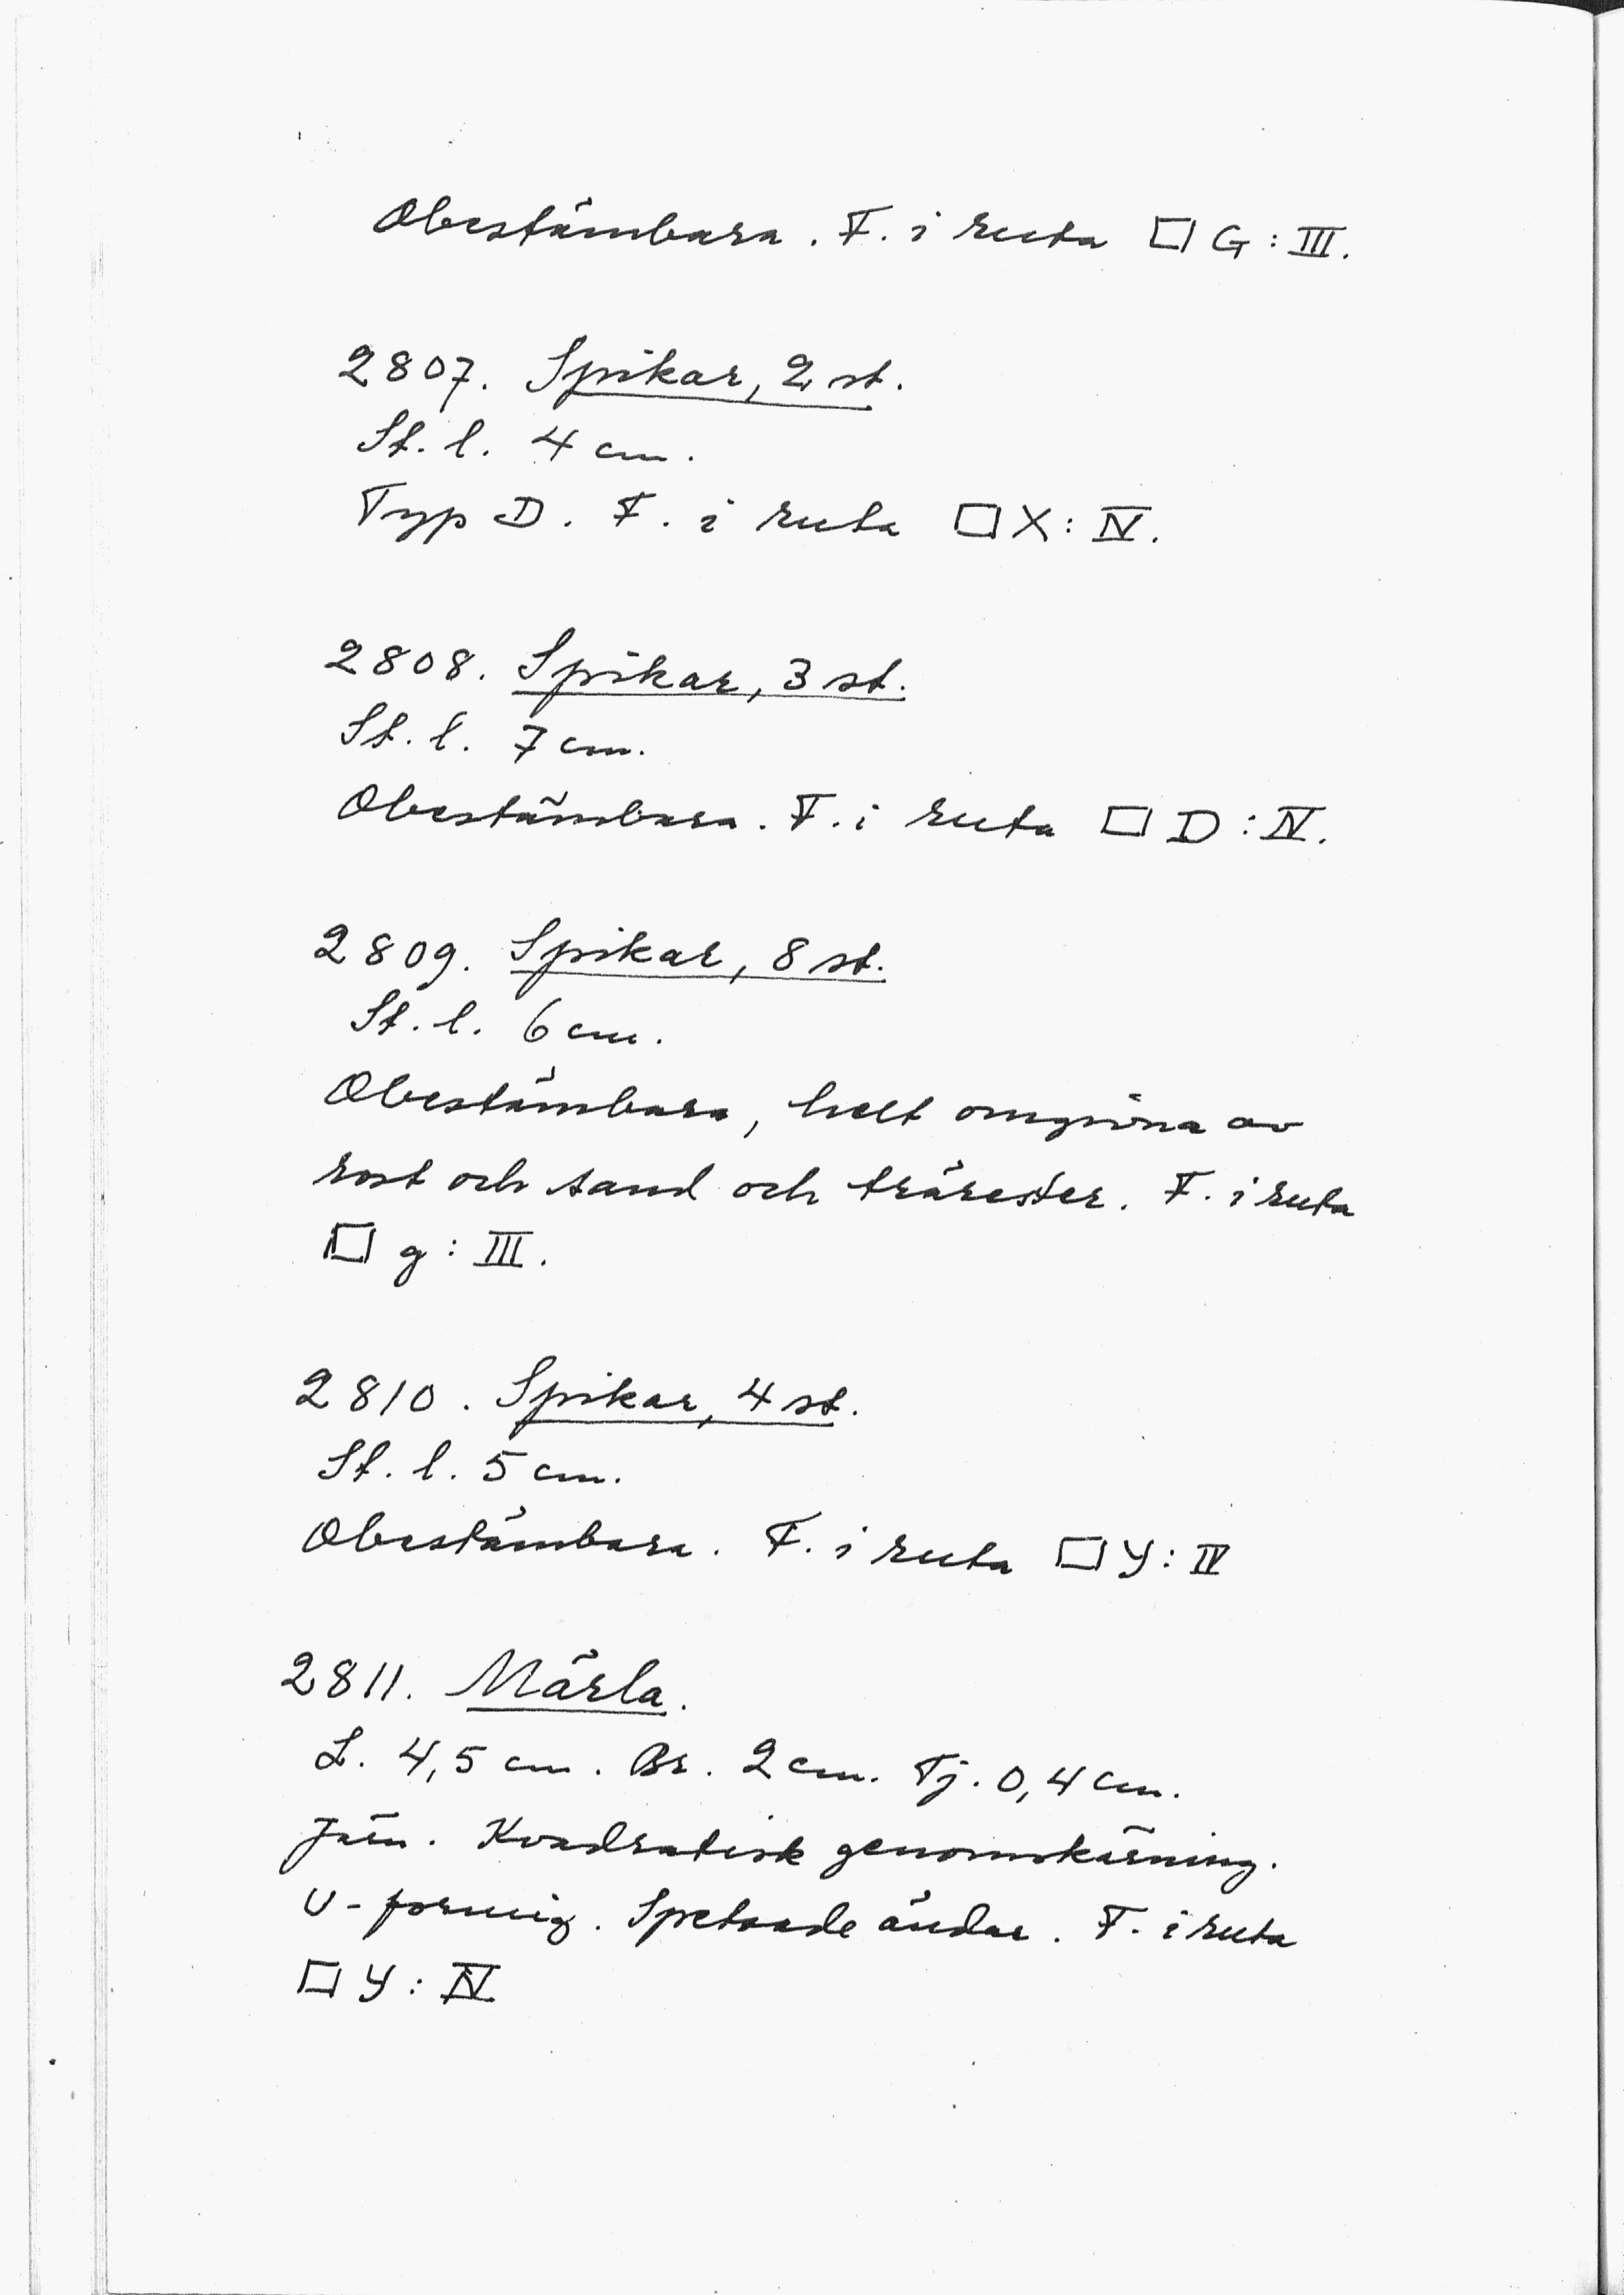 Obestämbara. F. i ruta □ G : III.
2807. Spikar, 2 st.
St. l. 4 cm.
Typ D. F. i ruta □ X : IV.
2808. Spikar, 3 st.
St. l. 7 cm.
Obestämbara. F. i ruta □ D : IV.
2809. Spikar, 8 st.
St. l. 6 cm.
Obestämbara, helt omgivna av
rost och sand och trärester. F. i ruta
□ g : III.
2810. Spikar, 4 st.
St. l. 5 cm.
Obestämbara. F. i ruta □ Y : IV
2811. Märla.
L. 4,5 cm. Br. 2 cm. Tj. 0,4 cm.
Järn. Kvadratisk genomskärning.
U-formig. Spetsade ändar. F. i ruta
□ Y : IV